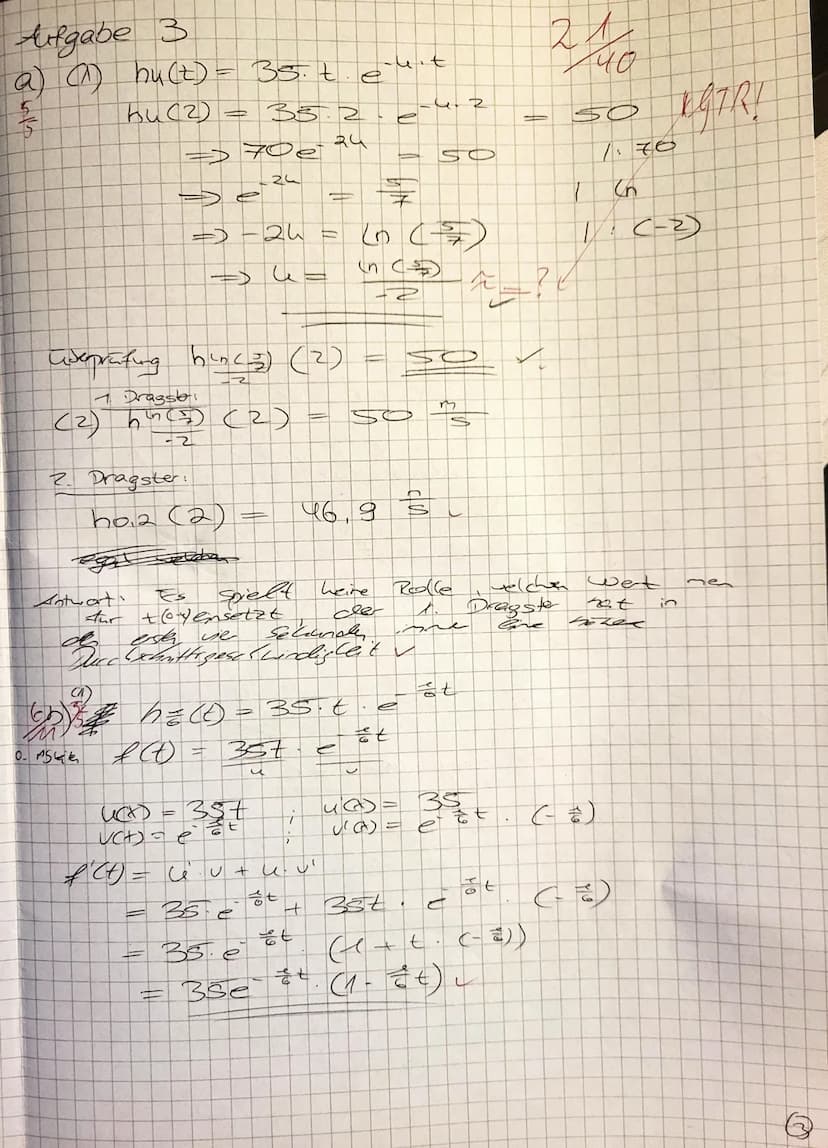 Aufgabe 3
21/40
a) (1) hu(t) = 35 · t · e^-u·t
5/5
hu(2) = 35 · 2 · e^-u·2 = 50
GTR!
=> 70e^-2u = 50 |: 70
=> e^-2u = 5/7 | ln
=> -2u = ln (5/7) | : (-2)
=> u = ln(5/7)/-2 ≈ = ?
Überprüfung h ln(5/7)/-2 (2) = 50 ✓
1. Dragster:
(2) h ln(5/7)/-2 (2) = 50 m/s
2. Dragster:
h0,2 (2) = 46,9 m/s ✓
Antwort: Es spielt keine Rolle, welchen Wert men
für t(0-4) ensetzt, der 1. Dragster hat in
erste vier Sekunden eine
Durchschnittsgeschwindigkeit ✓
b) (1) h 1/6 (t) = 35 · t · e^-1/6 t
f(t) = 35t · e^-1/6 t
u v
u(x) = 35t ; u'(x) = 35
v(t) = e^-1/6 t ; v'(x) = e^-1/6 t · (-1/6)
f'(t) = u' · v + u · v'
= 35 · e^-1/6 t + 35t · e^-1/6 t · (-1/6)
= 35 · e^-1/6 t · (1 + t · (-1/6))
= 35e^-1/6 t · (1 - 1/6 t) ✓
3